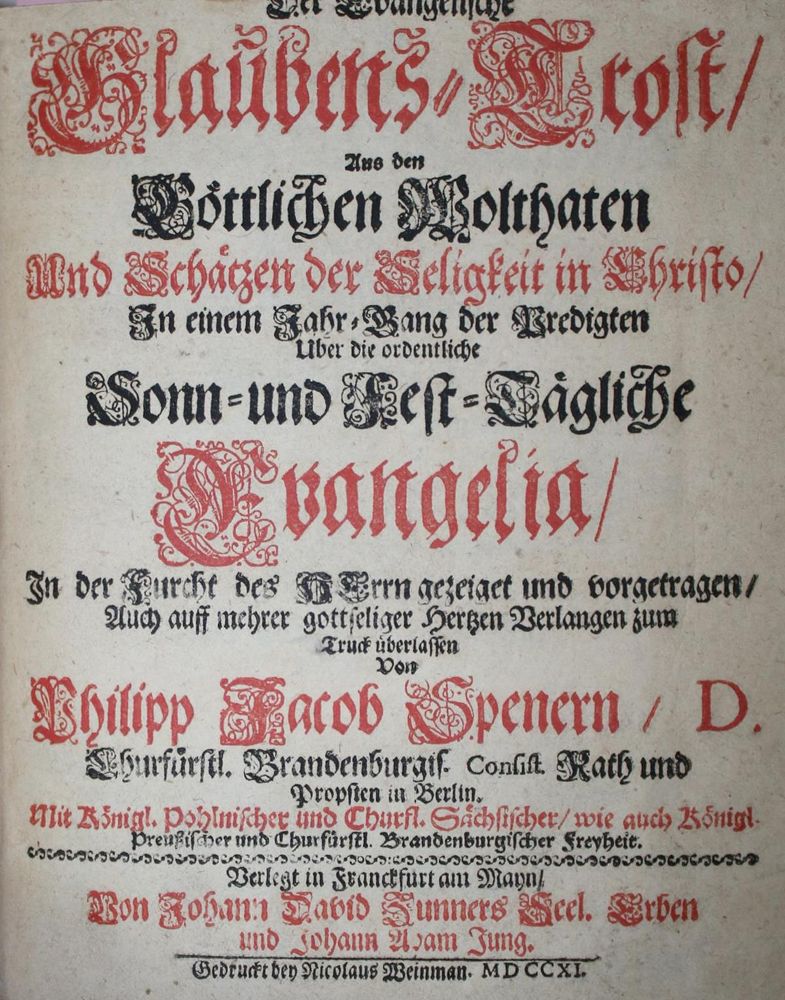 Der Evangelische
Glaubens-Trost/
Aus den
Göttlichen Wolthaten
Und Schätzen der Seligkeit in Christo/
In einem Jahr-Gang der Predigten
Uber die ordentliche
Sonn-und Fest-Tägliche
Evangelia/
In der Furcht des HErrn gezeiget und vorgetragen/
Auch auff mehrer gottseliger Hertzen Verlangen zum
Truck überlassen
Von
Philipp Jacob Spenern / D.
Churfürstl. Brandenburgis. Consist. Rath und
Propsten in Berlin.
Mit Königl. Pohlnischer und Churfl. Sächsischer/ wie auch Königl.
Preußischer und Churfürstl. Brandenburgischer Freyheit.
Verlegt in Franckfurt am Mayn/
Von Johann David Zunners Seel. Erben
und Johann Adam Jung.
Gedruckt bey Nicolaus Weinman. MDCCXI.